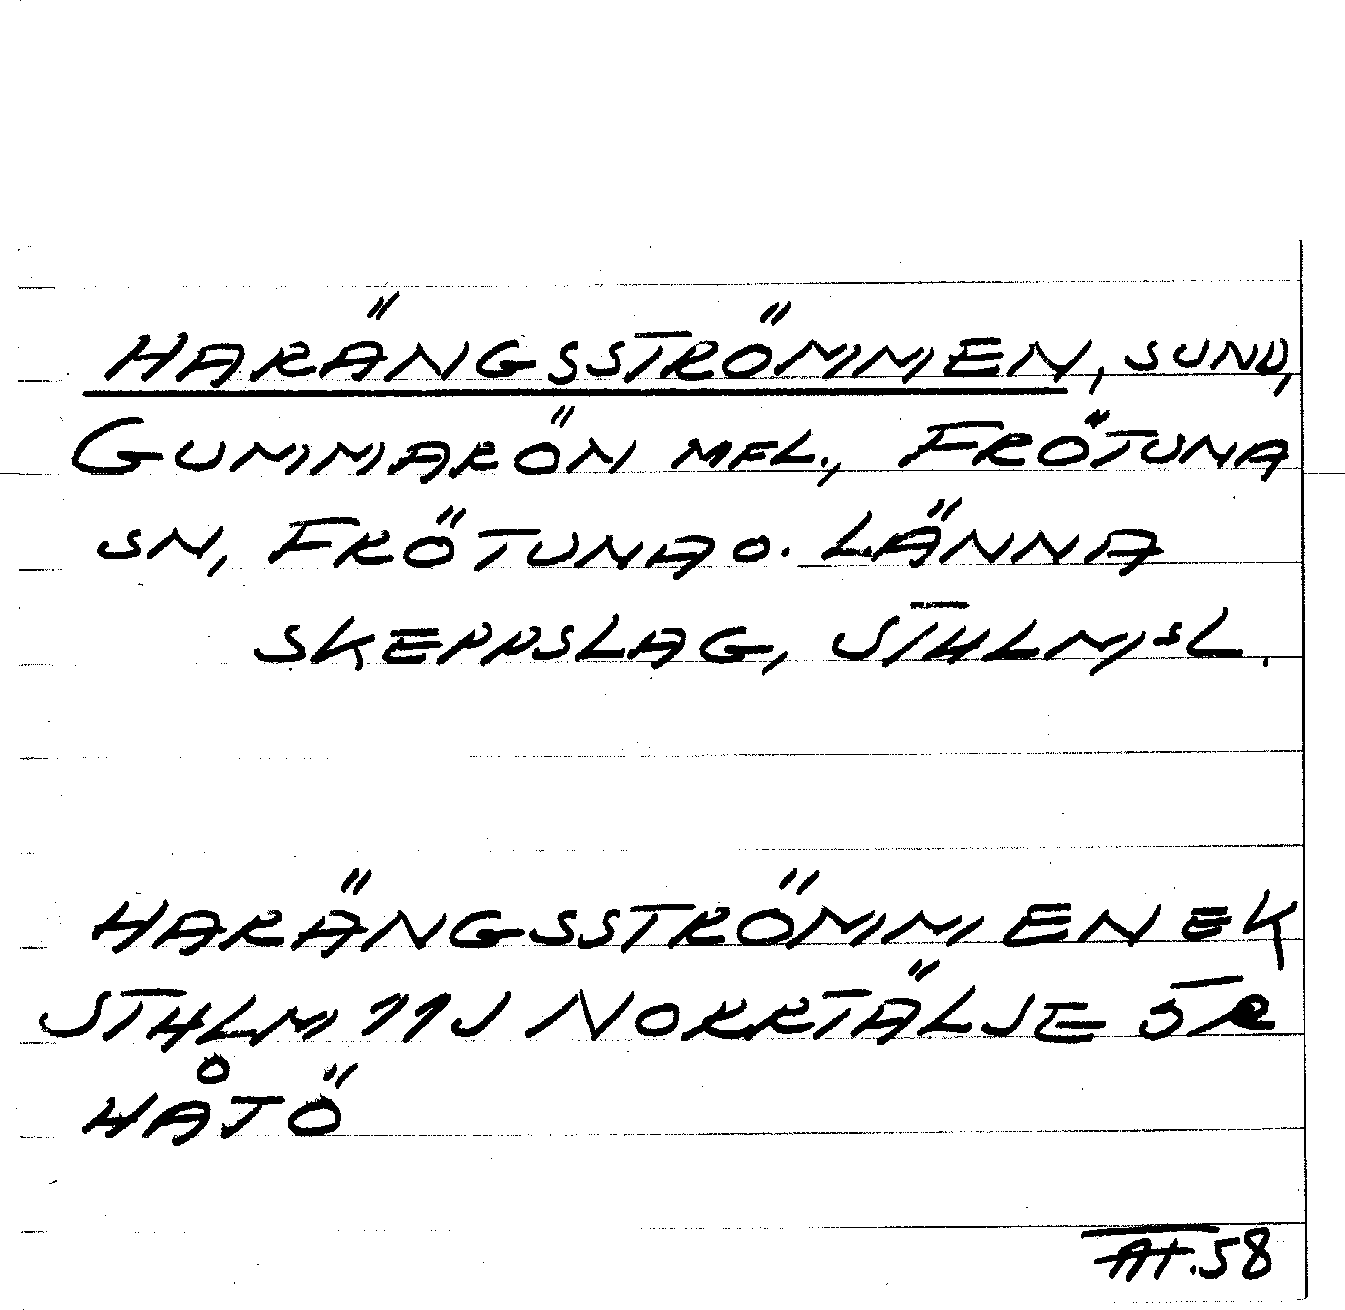 HARÄNGSSTRÖMMEN, SUND,
GUMMARÖN MFL., FRÖTUNA
SN, FRÖTUNA O. LÄNNA
SKEPPSLAG, STHLMSL.
HARÄNGSSTRÖMMEN EK
STHLM 11J NORRTÄLJE
HÅTÖ
58